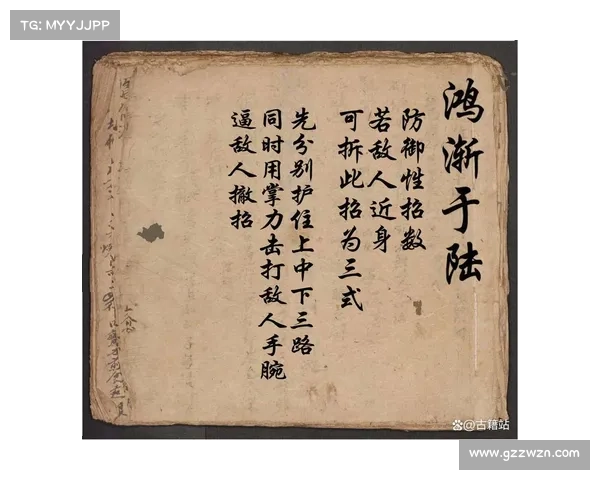 TG: MYYJJPP
鸿渐于陆
防御性招数
若敌人近身
可拆此招为三式
先分别护住上中下三路
同时用掌力击打敌人手腕
逼敌人撤招
@古籍站
www.gzzwzn.com